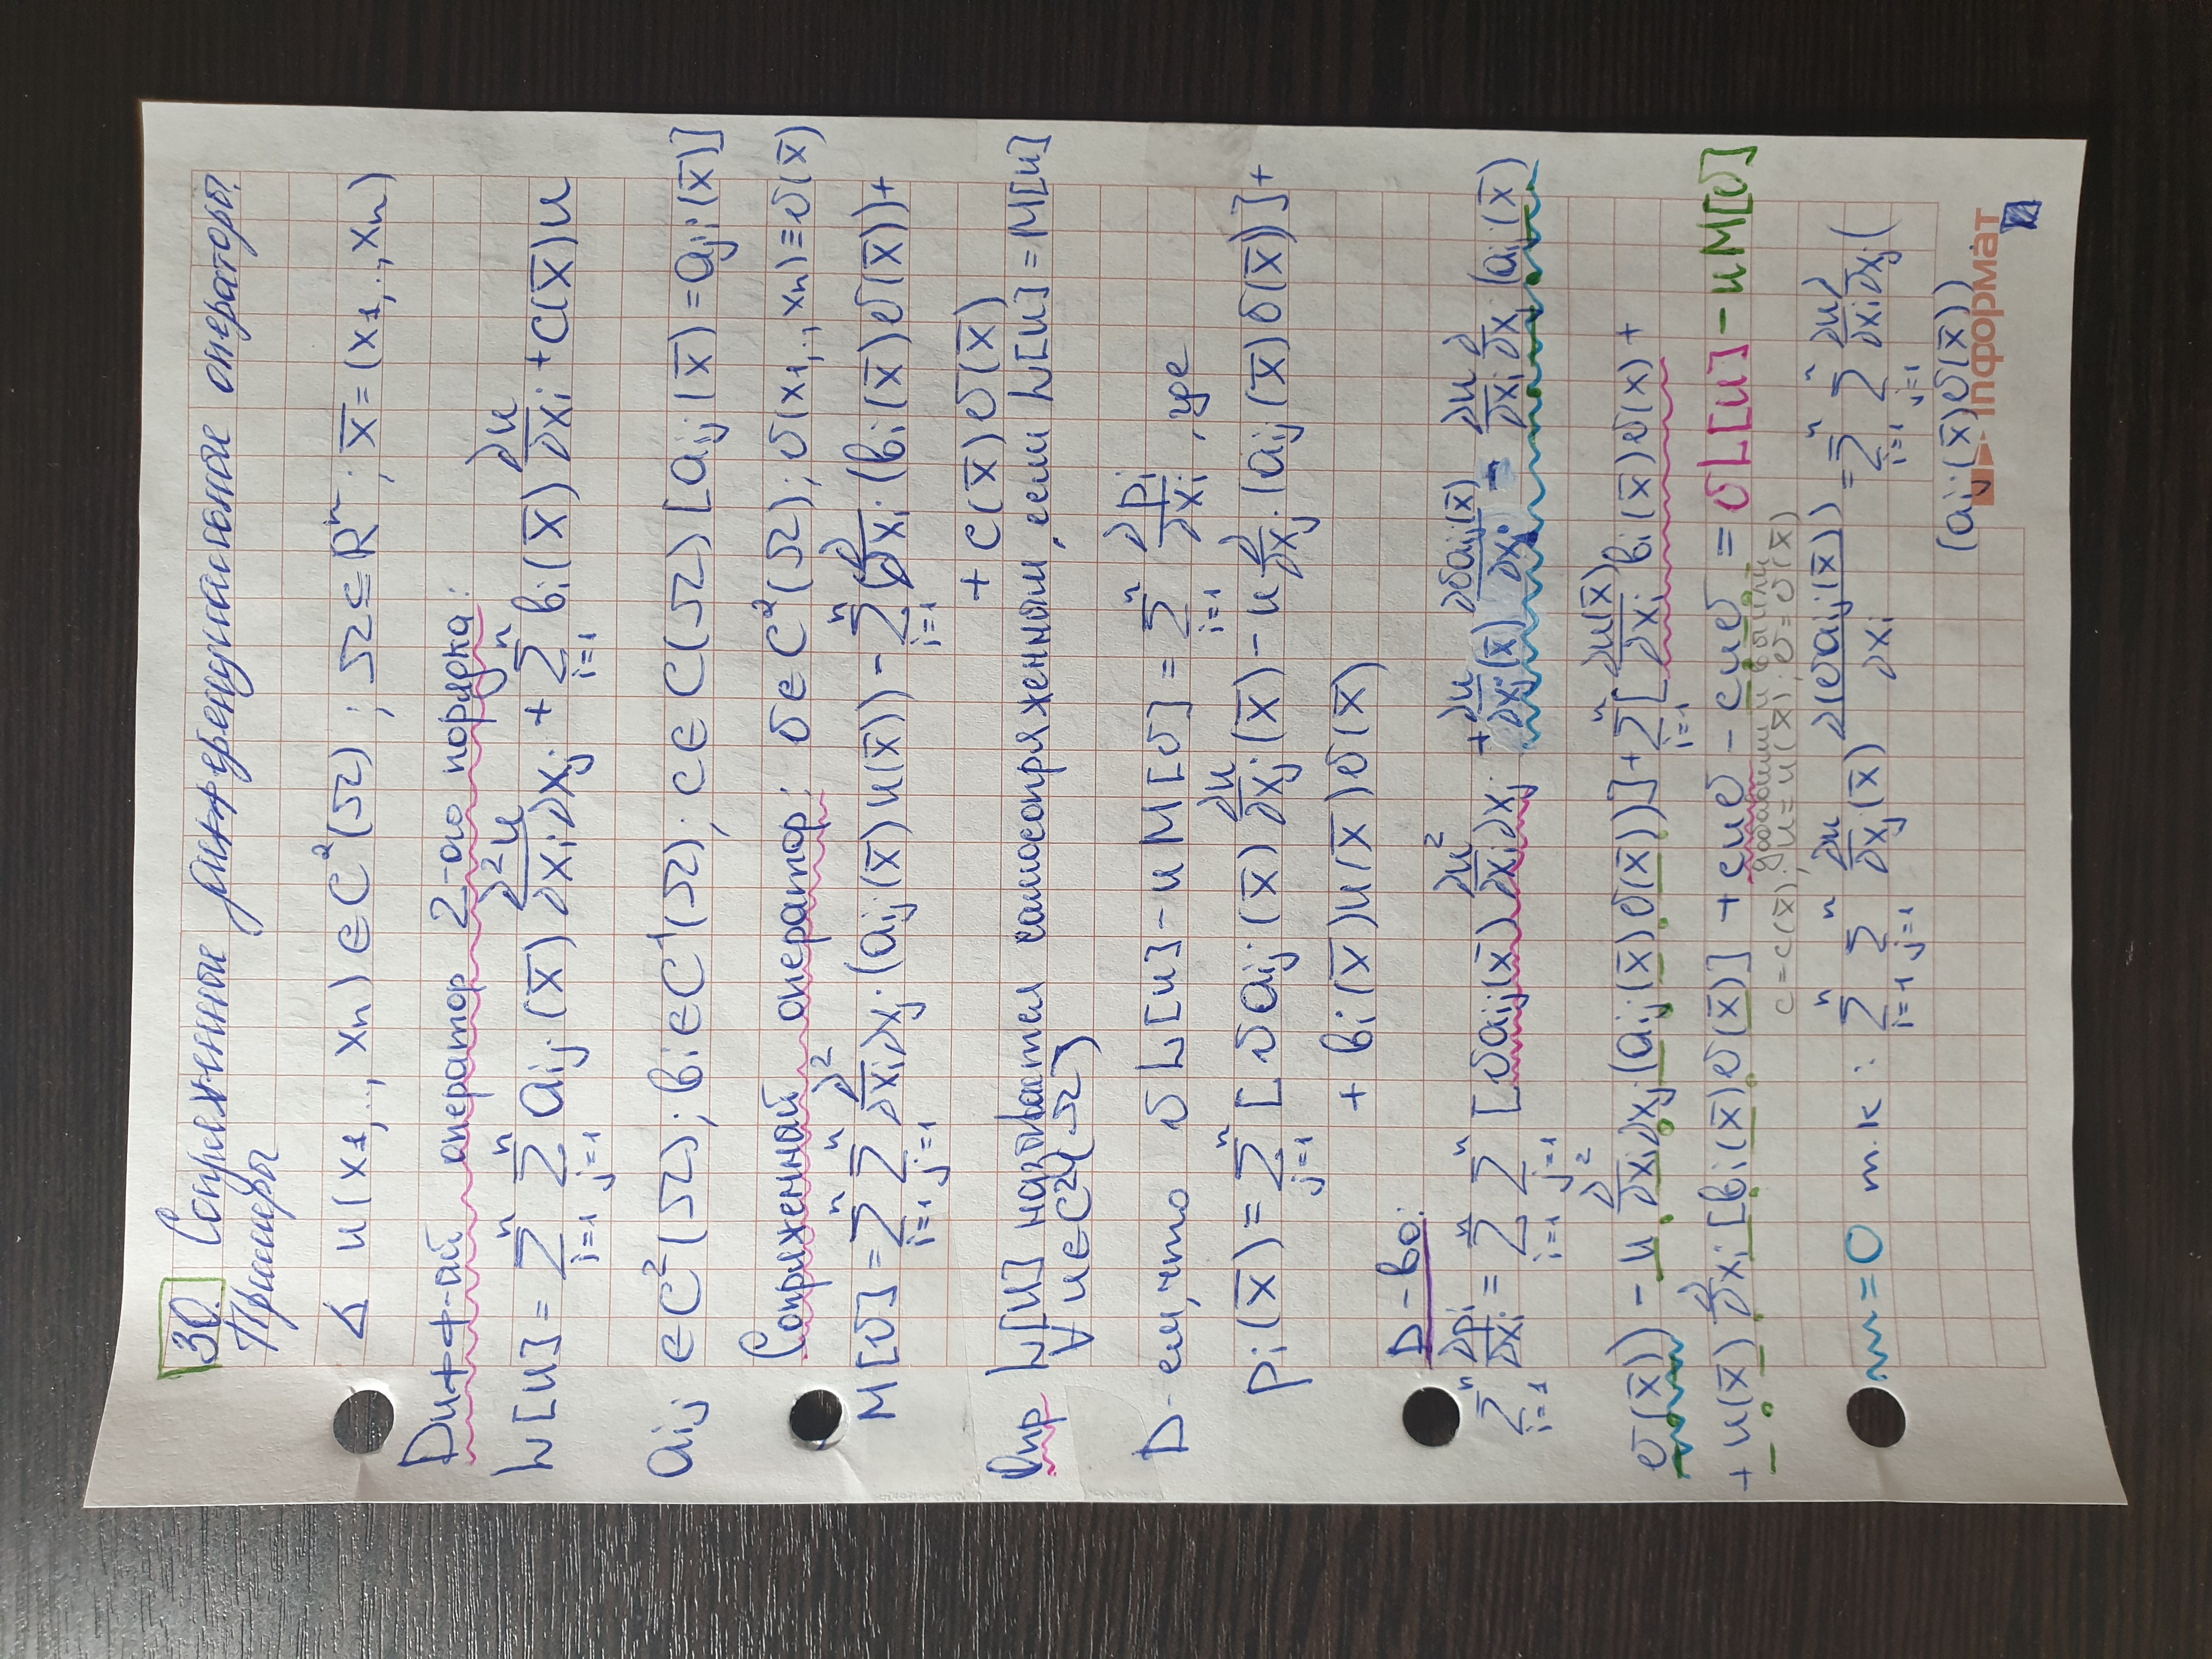 30. Сопряженные дифференциальные операторы.
Примеры
∆ u(x₁,..., xₙ) ∈ C²(Ω) ; Ω ⊆ Rⁿ ; x̄ = (x₁,..., xₙ)
Дифф-ый оператор 2-ого порядка:
L[u] = ∑ⁿᵢ₌₁ ∑ⁿⱼ₌₁ aᵢⱼ(x̄) ∂²u/∂xᵢ∂xⱼ + ∑ⁿᵢ₌₁ bᵢ(x̄) ∂u/∂xᵢ + c(x̄)u
aᵢⱼ ∈ C²(Ω); bᵢ ∈ C¹(Ω); c ∈ C(Ω) [aᵢⱼ(x̄) = aⱼᵢ(x̄)]
Сопряженный оператор: v ∈ C²(Ω); v(x₁,.., xₙ) ≡ v(x̄)
M[v] = ∑ⁿᵢ₌₁ ∑ⁿⱼ₌₁ ∂²/∂xᵢ∂xⱼ (aᵢⱼ(x̄)u(x̄)) - ∑ⁿᵢ₌₁ ∂/∂xᵢ (bᵢ(x̄)v(x̄)) +
+ c(x̄)v(x̄)
Опр L[u] называется самосопряженным, если L[u] = M[u]
∀ u ∈ C²(Ω)
D-ем, что vL[u] - uM[v] = ∑ⁿᵢ₌₁ ∂pᵢ/∂xᵢ, где
pᵢ(x̄) = ∑ⁿⱼ₌₁ [vaᵢⱼ(x̄) ∂u/∂xⱼ(x̄) - u ∂/∂xⱼ (aᵢⱼ(x̄)v(x̄))] +
+ bᵢ(x̄)u(x̄)v(x̄)
D-во:
∑ⁿᵢ₌₁ ∂pᵢ/∂xᵢ = ∑ⁿᵢ₌₁ ∑ⁿⱼ₌₁ [vaᵢⱼ(x̄) ∂u²/∂xᵢ∂xⱼ + ∂u/∂xⱼ(x̄) ∂vaᵢⱼ(x̄)/∂xᵢ - ∂u/∂xᵢ ∂/∂xⱼ (aᵢⱼ(x̄)
v(x̄)) - u ∂²/∂xᵢ∂xⱼ (aᵢⱼ(x̄)v(x̄))] + ∑ⁿᵢ₌₁ [∂u(x̄)/∂xᵢ bᵢ(x̄)v(x) +
+ u(x̄) ∂/∂xᵢ [bᵢ(x̄)v(x̄)] + cuv - cuv = vL[u] - uM[v]
c = c(x̄); u = u(x̄); v = v(x̄)
добавили и вычли
= 0 т.к: ∑ⁿᵢ₌₁ ∑ⁿⱼ₌₁ ∂u/∂xⱼ(x̄) ∂(vaᵢⱼ(x̄))/∂xᵢ = ∑ⁿᵢ₌₁ ∑ⁿⱼ₌₁ ∂u/∂xᵢ ∂/∂xⱼ (
(aᵢⱼ(x̄)v(x̄))
informat